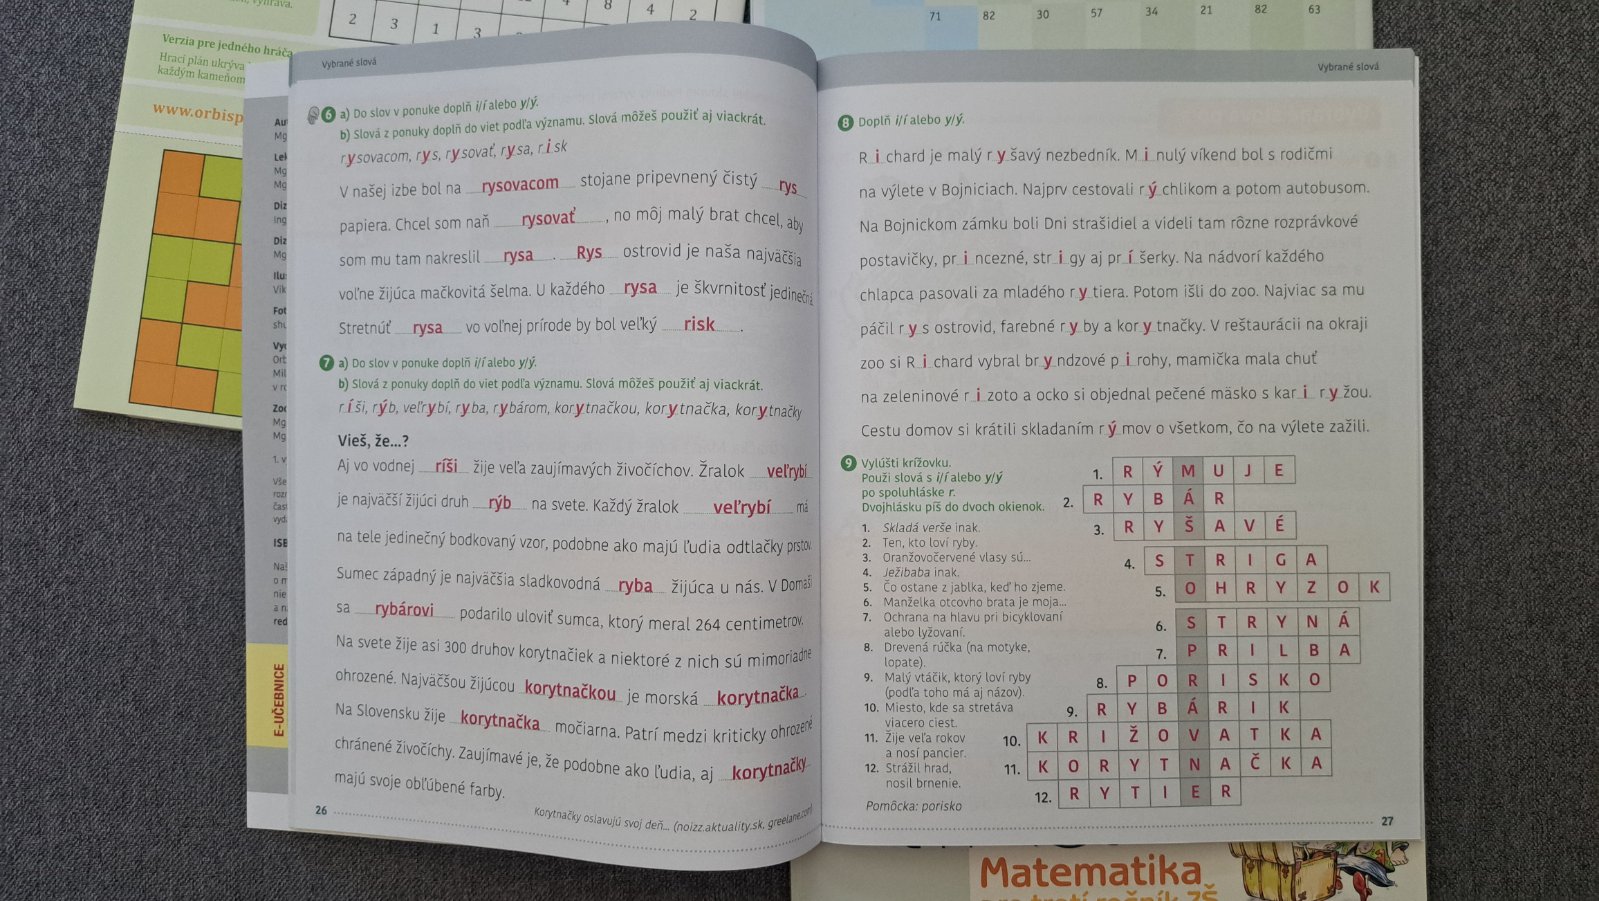 vyhráva.
8
4
2
2
3
1
3
Verzia pre jedného hráča
Hrací plán ukrýva
každým kameňom
www.orbisp
71 82 30 57 34 21 82 63
Vybrané slová
6 a) Do slov v ponuke doplň i/í alebo y/ý.
b) Slová z ponuky doplň do viet podľa významu. Slová môžeš použiť aj viackrát.
rysovacom, rys, rysovať, rysa, risk
V našej izbe bol na rysovacom stojane pripevnený čistý rys
papiera. Chcel som naň rysovať, no môj malý brat chcel, aby
som mu tam nakreslil rysa. Rys ostrovid je naša najväčšia
voľne žijúca mačkovitá šelma. U každého rysa je škvrnitosť jedinečná
Stretnúť rysa vo voľnej prírode by bol veľký risk.
7 a) Do slov v ponuke doplň i/í alebo y/ý.
b) Slová z ponuky doplň do viet podľa významu. Slová môžeš použiť aj viackrát.
ríši, rýb, veľrybí, ryba, rybárom, korytnačkou, korytnačka, korytnačky
Vieš, že...?
Aj vo vodnej ríši žije veľa zaujímavých živočíchov. Žralok veľrybí
je najväčší žijúci druh rýb na svete. Každý žralok veľrybí má
na tele jedinečný bodkovaný vzor, podobne ako majú ľudia odtlačky prstov.
Sumec západný je najväčšia sladkovodná ryba žijúca u nás. V Domaši
sa rybárovi podarilo uloviť sumca, ktorý meral 264 centimetrov.
Na svete žije asi 300 druhov korytnačiek a niektoré z nich sú mimoriadne
ohrozené. Najväčšou žijúcou korytnačkou je morská korytnačka.
Na Slovensku žije korytnačka močiarna. Patrí medzi kriticky ohrozené
chránené živočíchy. Zaujímavé je, že podobne ako ľudia, aj korytnačky
majú svoje obľúbené farby.
26
Korytnačky oslavujú svoj deň... (noizz.aktuality.sk, greelane.com)
E-UČEBNICE
Vybrané slová
8 Doplň i/í alebo y/ý.
Richard je malý ryšavý nezbedník. Minulý víkend bol s rodičmi
na výlete v Bojniciach. Najprv cestovali rýchlikom a potom autobusom.
Na Bojnickom zámku boli Dni strašidiel a videli tam rôzne rozprávkové
postavičky, princezné, strigy aj príšerky. Na nádvorí každého
chlapca pasovali za mladého rytiera. Potom išli do zoo. Najviac sa mu
páčil rys ostrovid, farebné ryby a korytnačky. V reštaurácii na okraji
zoo si Richard vybral bryndzové pirohy, mamička mala chuť
na zeleninové rizoto a ocko si objednal pečené mäsko s kari ryžou.
Cestu domov si krátili skladaním rýmov o všetkom, čo na výlete zažili.
9 Vylúšti krížovku.
Použi slová s i/í alebo y/ý
po spoluhláske r.
Dvojhlásku píš do dvoch okienok.
1. Skladá verše inak.
2. Ten, kto loví ryby.
3. Oranžovočervené vlasy sú...
4. Ježibaba inak.
5. Čo ostane z jablka, keď ho zjeme.
6. Manželka otcovho brata je moja...
7. Ochrana na hlavu pri bicyklovaní
alebo lyžovaní.
8. Drevená rúčka (na motyke,
lopate).
9. Malý vtáčik, ktorý loví ryby
(podľa toho má aj názov).
10. Miesto, kde sa stretáva
viacero ciest.
11. Žije veľa rokov
a nosí pancier.
12. Strážil hrad,
nosil brnenie.
Pomôcka: porisko
1. R Ý M U J E
2. R Y B Á R
3. R Y Š A V É
4. S T R I G A
5. O H R Y Z O K
6. S T R Y N Á
7. P R I L B A
8. P O R I S K O
9. R Y B Á R I K
10. K R I Ž O V A T K A
11. K O R Y T N A Č K A
12. R Y T I E R
27
Matematika